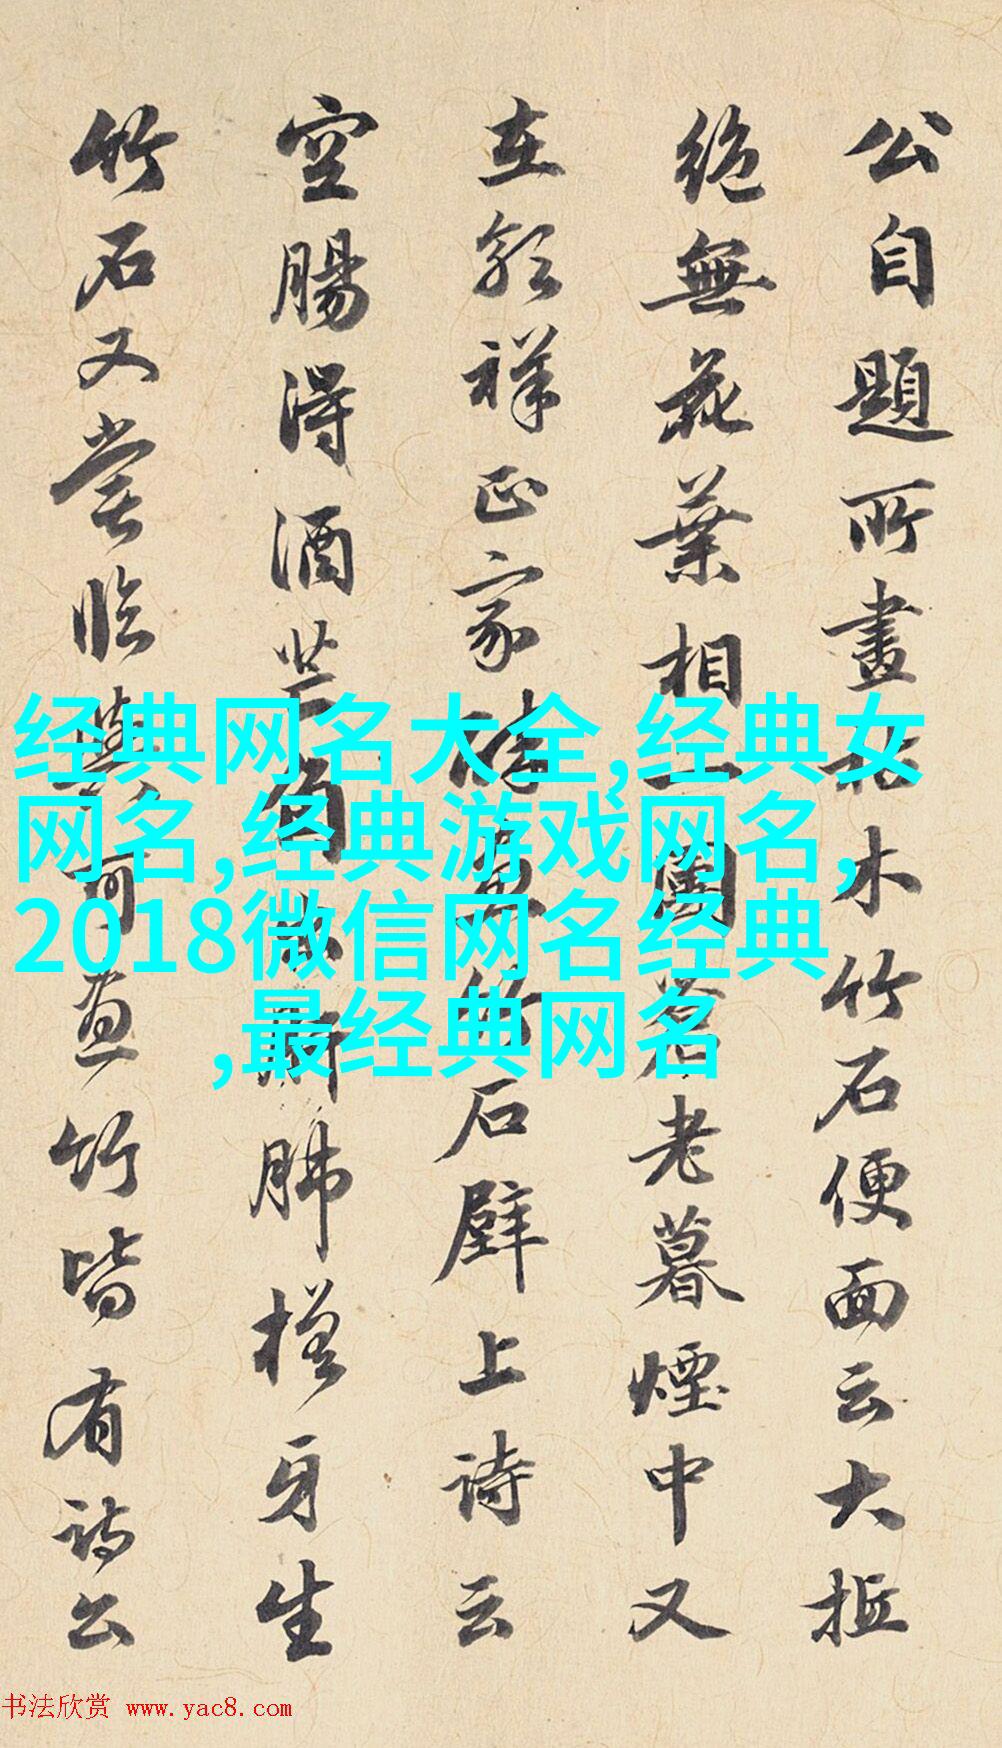 公自題所畫枯木竹石便面云大抵
絶無花葉相一團蒼老暮煙中又
在郭祥正家醉畫竹石壁上詩云
空腸得酒芒角出肝肺槎牙生
竹石又嘗臨與可畫竹皆有詩公
经典网名大全,经典女
网名,经典游戏网名,
2018微信网名经典
,最经典网名
书法欣赏 www.yac8.com